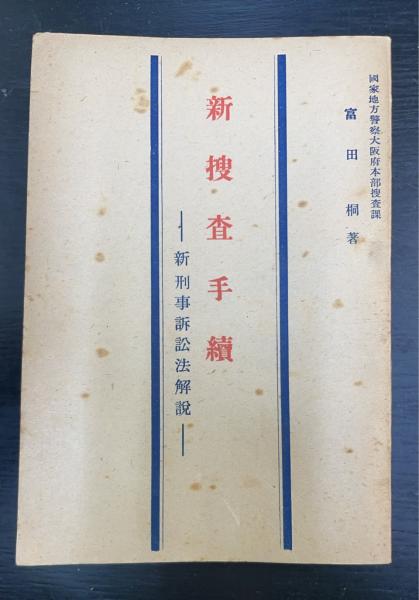 國家地方警察大阪府本部搜査課
富田桐著
新搜査手續
―新刑事訴訟法解說―